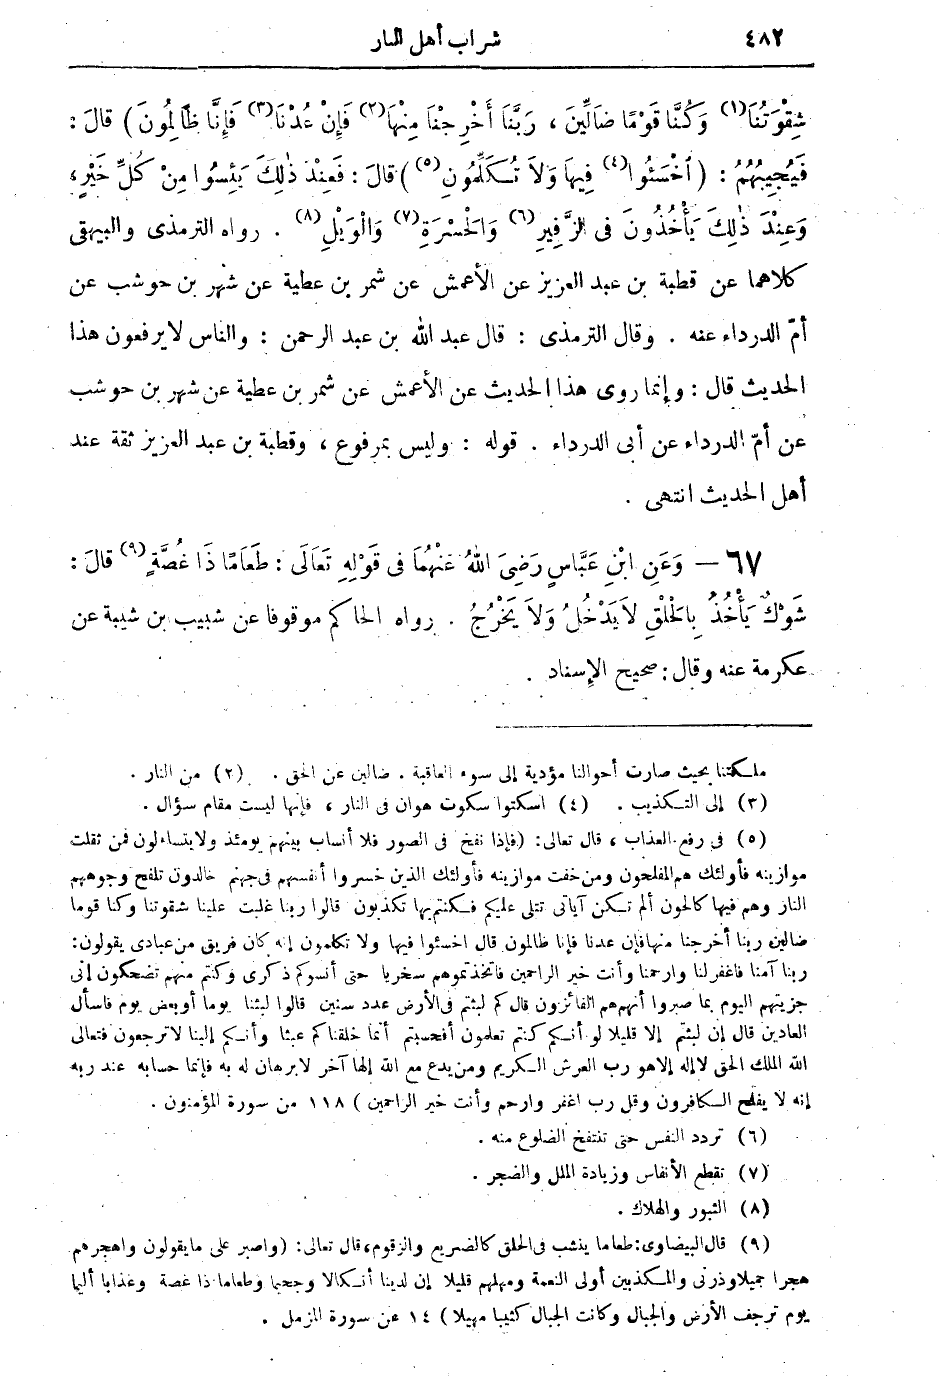 ٤٨٢ شراب أهل النار
شِقْوَتُنَا(١) وَكُنَّا قَوْمًا ضَالِّينَ ، رَبَّنَا أَخْرِجْنَا مِنْهَا(٢) فَإِنْ عُدْنَا(٣) فَإِنَّا ظَالِمُونَ ) قالَ :
فَيُجِيبُهُمُ : ( ٱخْسَئُوا(٤) فِيهَا وَلاَ تُكَلِّمُونِ(٥) ) قالَ : فَعِنْدَ ذٰلِكَ يَئِسُوا مِنْ كُلِّ خَيْرٍ ،
وَعِنْدَ ذٰلِكَ يَأْخُذُونَ فى الزَّفِيرِ(٦) وَالحَسْرَةِ(٧) وَالْوَيْلِ(٨) . رواه الترمذى والبيهقى
كلاهما عن قطبة بن عبد العزيز عن الأعمش عن شمر بن عطية عن شهر بن حوشب عن
أمّ الدرداء عنه . وقال الترمذى : قال عبد الله بن عبد الرحمن : والناس لا يرفعون هذا
الحديث قال : وإنما روى هذا الحديث عن الأعمش عن شمر بن عطية عن شهر بن حوشب
عن أمّ الدرداء عن أبى الدرداء . قوله : وليس بمرفوع ، وقطبة بن عبد العزيز ثقة عند
أهل الحديث انتهى .
٦٧ – وَعَنِ ابْنِ عَبَّاسٍ رَضِىَ اللهُ عَنْهُمَا فى قَوْلِهِ تَعَالَى : طَعَامًا ذَا غُصَّةٍ(٩) قالَ :
شَوْكٌ يَأْخُذُ بِالحَلْقِ لاَ يَدْخُلُ وَلاَ يَخْرُجُ . رواه الحاكم موقوفا عن شبيب بن شيبة عن
عكرمة عنه وقال : صحيح الإسناد .
ملكتنا بحيث صارت أحوالنا مؤدية إلى سوء العاقبة . ضالين عن الحق . (٢) من النار .
(٣) إلى التكذيب . (٤) اسكتوا سكوت هوان فى النار ، فإنها ليست مقام سؤال .
(٥) فى رفع العذاب ، قال تعالى : ( فإذا نفخ فى الصور فلا أنساب بينهم يومئذ ولا يتساءلون فمن ثقلت
موازينه فأولئك هم المفلحون ومن خفت موازينه فأولئك الذين خسروا أنفسهم فى جهنم خالدون تلفح وجوههم
النار وهم فيها كالحون ألم تكن آياتى تتلى عليكم فكنتم بها تكذبون قالوا ربنا غلبت علينا شقوتنا وكنا قوما
ضالين ربنا أخرجنا منها فإن عدنا فإنا ظالمون قال اخسئوا فيها ولا تكلمون إنه كان فريق من عبادى يقولون :
ربنا آمنا فاغفر لنا وارحمنا وأنت خير الراحمين فاتخذتموهم سخريا حتى أنسوكم ذكرى وكنتم منهم تضحكون إنى
جزيتهم اليوم بما صبروا أنهم هم الفائزون قال كم لبثتم فى الأرض عدد سنين قالوا لبثنا يوما أو بعض يوم فاسأل
العادين قال إن لبثتم إلا قليلا لو أنكم كنتم تعلمون أفحسبتم أنما خلقناكم عبثا وأنكم إلينا لا ترجعون فتعالى
الله الملك الحق لا إله إلا هو رب العرش الكريم ومن يدع مع الله إلها آخر لا برهان له به فإنما حسابه عند ربه
إنه لا يفلح الكافرون وقل رب اغفر وارحم وأنت خير الراحمين ) ١١٨ من سورة المؤمنون .
(٦) تردد النفس حتى تنتفخ الضلوع منه .
(٧) تقطع الأنفاس وزيادة الملل والضجر .
(٨) الثبور والهلاك .
(٩) قال البيضاوى : طعاما ينشب فى الحلق كالضريع والزقوم ، قال تعالى : ( واصبر على ما يقولون واهجرهم
هجرا جميلا وذرنى والمكذبين أولى النعمة ومهلهم قليلا إن لدينا أنكالا وجحيما وطعاما ذا غصة وعذابا أليما
يوم ترجف الأرض والجبال وكانت الجبال كثيبا مهيلا ) ١٤ من سورة المزمل .